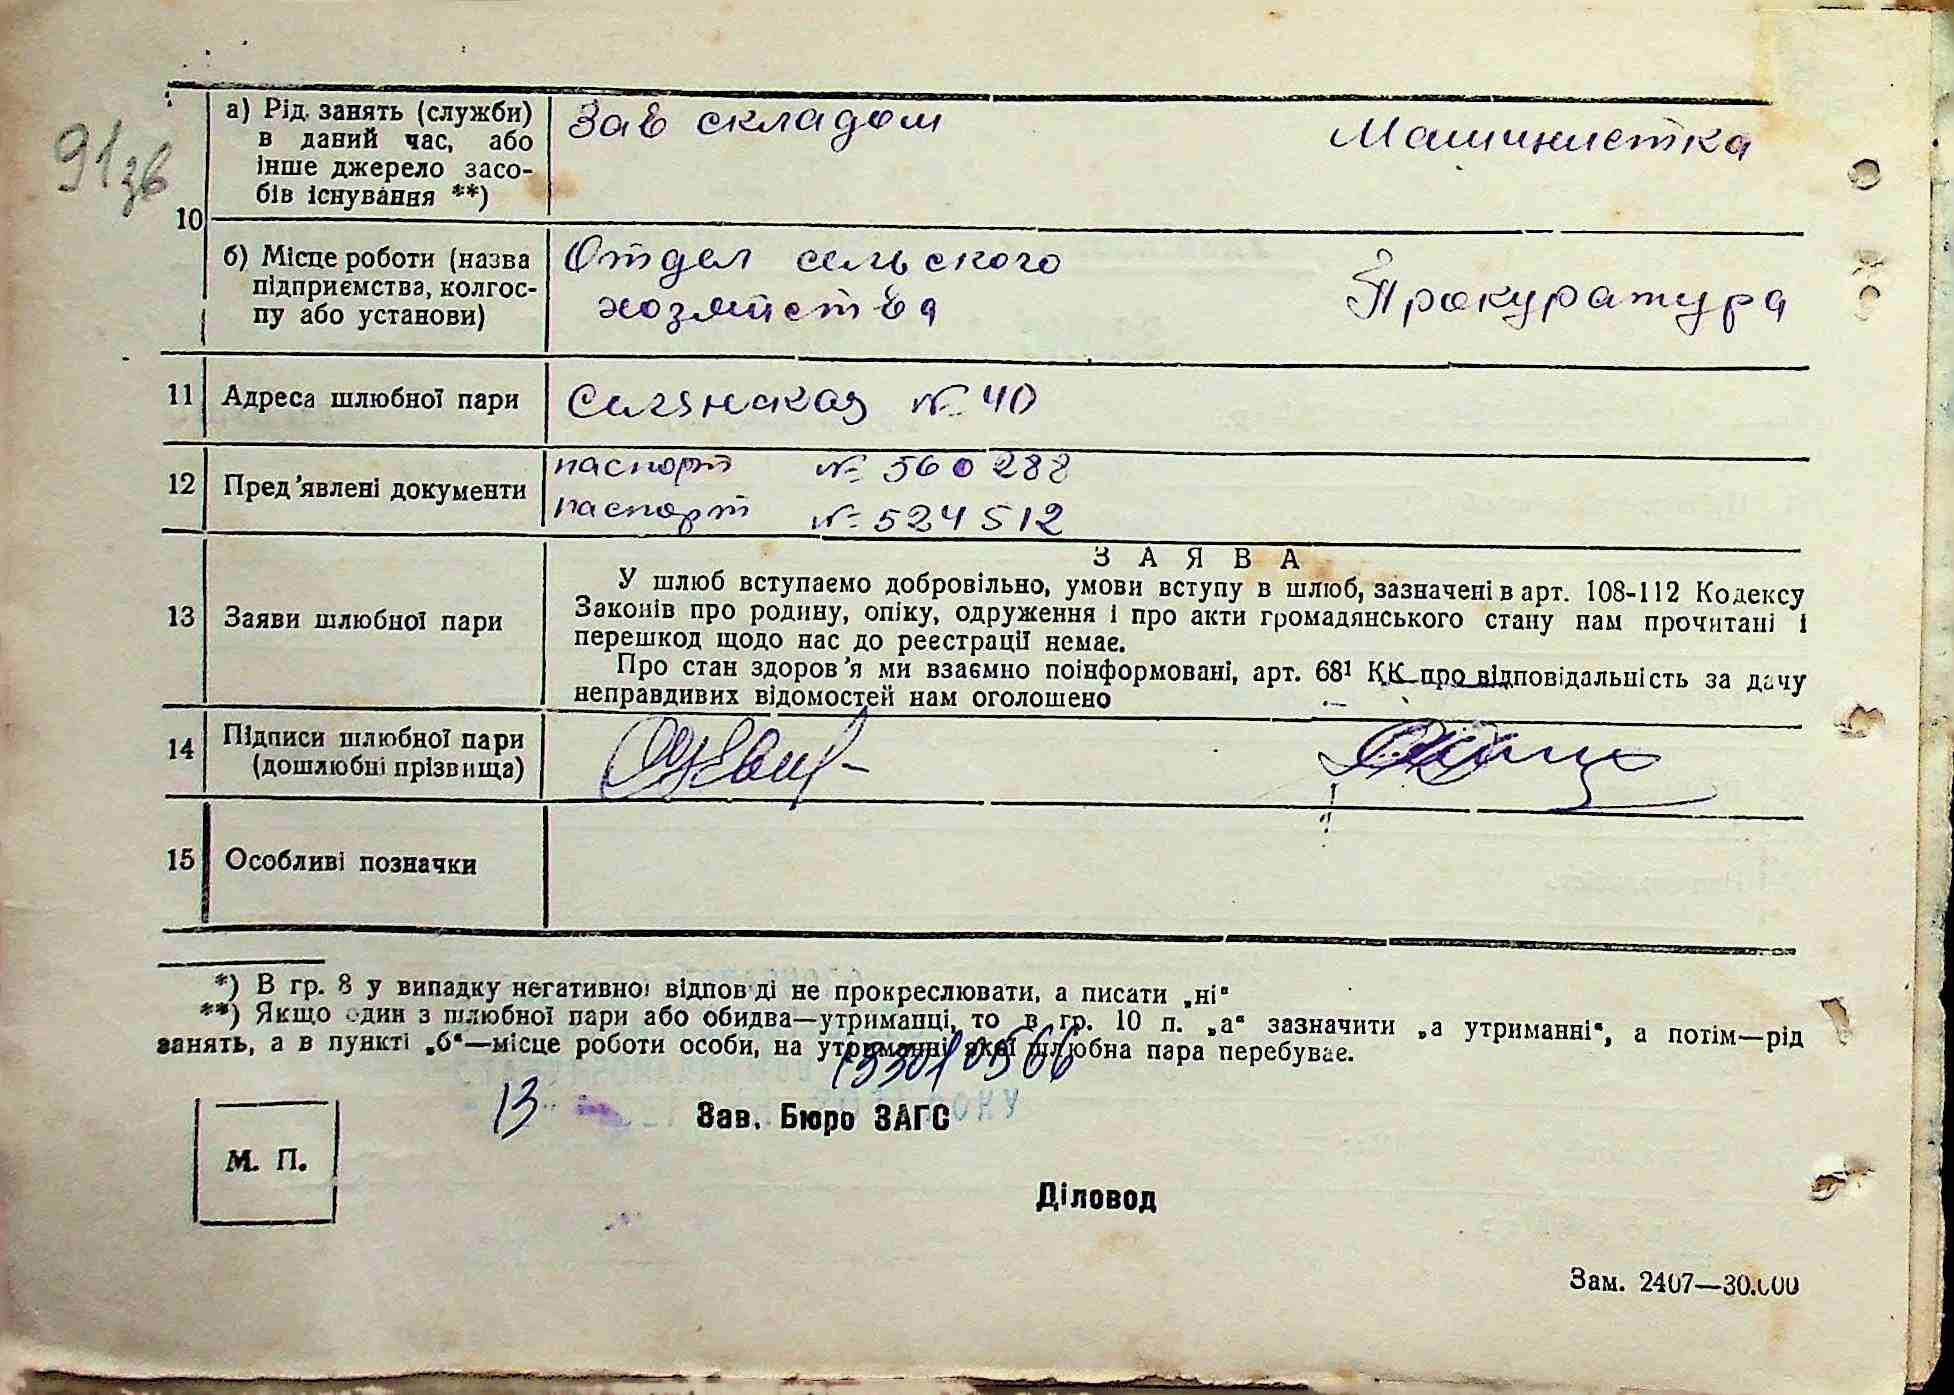 91зв
10
а) Рід занять (служби)
в даний час, або
інше джерело засо-
бів існування **)
Зав складом
Машинистка
б) Місце роботи (назва
підприємства, колгос-
пу або установи)
Отдел сельского
хозяйства
Прокуратура
11 Адреса шлюбної пари
Селянская № 40
12 Пред'явлені документи
паспорт № 560288
паспорт № 524512
13 Заяви шлюбної пари
ЗАЯВА
У шлюб вступаемо добровільно, умови вступу в шлюб, зазначені в арт. 108-112 Кодексу
Законів про родину, опіку, одруження і про акти громадянського стану нам прочитані і
перешкод щодо нас до реєстрації немає.
Про стан здоров'я ми взаємно поінформовані, арт. 68¹ КК про відповідальність за дачу
неправдивих відомостей нам оголошено
14 Підписи шлюбної пари
(дошлюбні прізвища)
15 Особливі позначки
*) В гр. 8 у випадку негативної відповіді не прокреслювати, а писати „ні“
**) Якщо один з шлюбної пари або обидва—утриманці, то в гр. 10 п. „а“ зазначити „а утриманні“, а потім—рід
занять, а в пункті „б“—місце роботи особи, на утриманні якої шлюбна пара перебуває.
13
Зав. Бюро ЗАГС
М. П.
Діловод
Зам. 2407—30.000